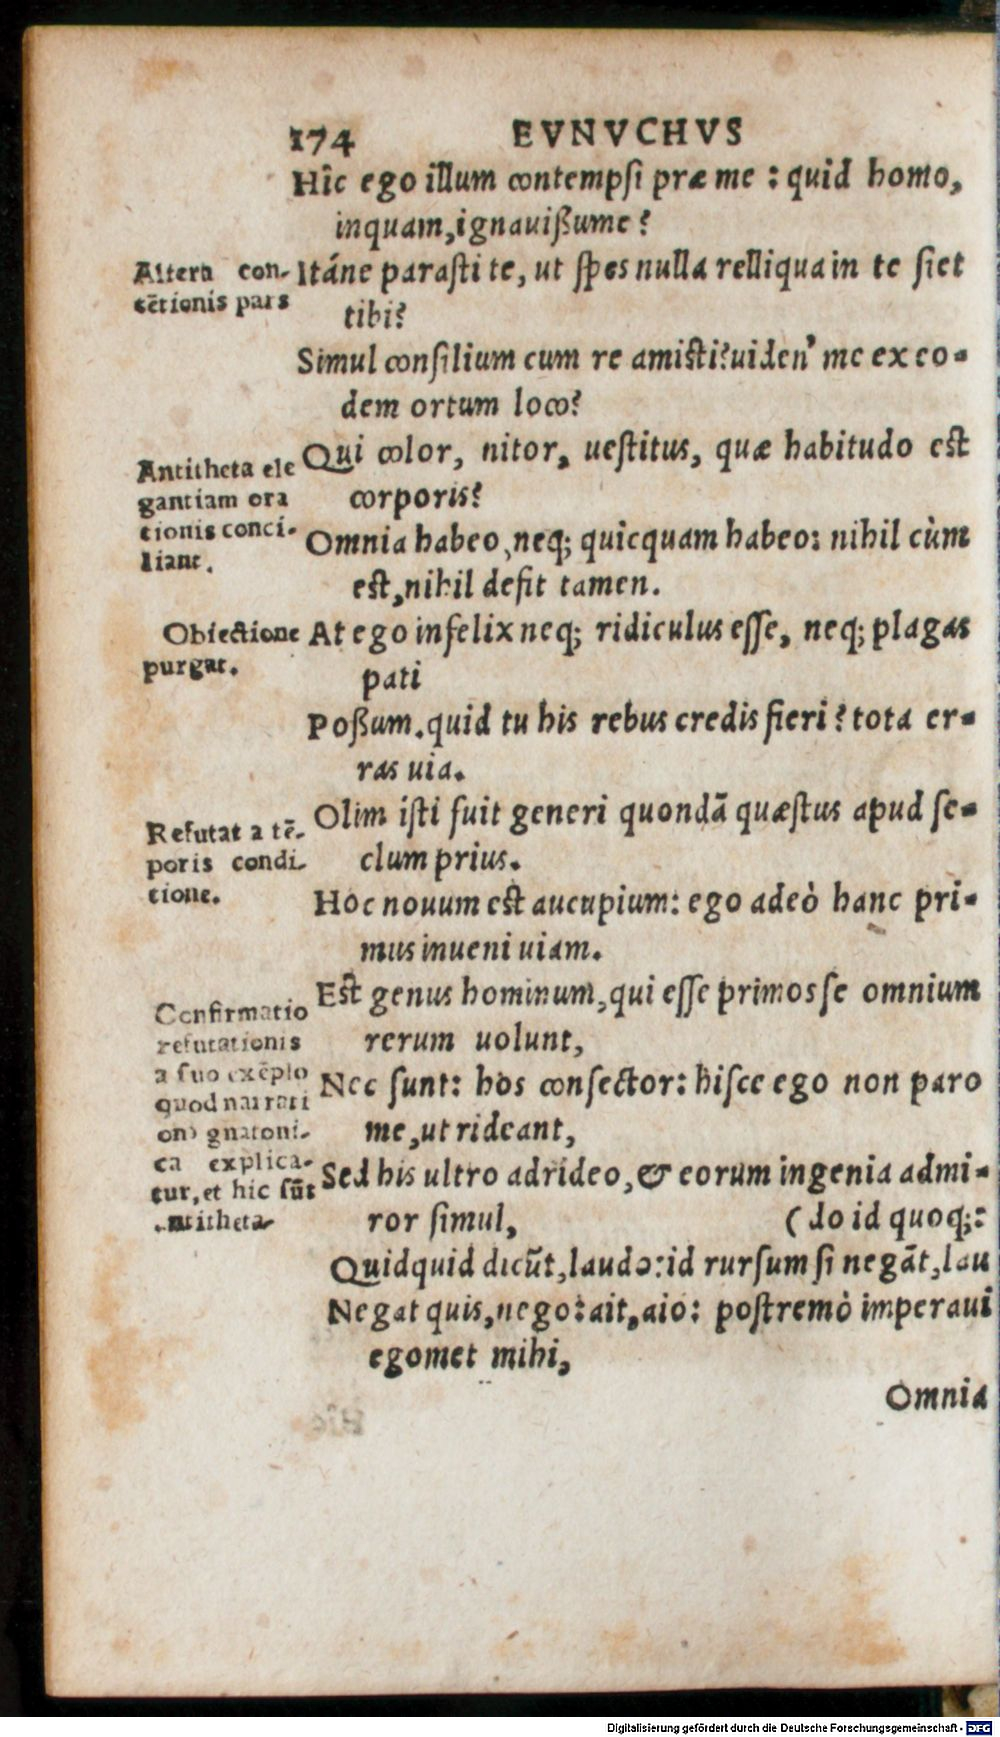 174 EVNVCHVS
Hîc ego illum contempsi præ me : quid homo,
inquam, ignauißume?
Altera con-
tētionis pars
Itáne parasti te, ut spes nulla relliqua in te siet
tibi?
Simul consilium cum re amisti? uiden' me ex eo-
dem ortum loco?
Antitheta ele
gantiam ora
tionis conci-
liant.
Qui color, nitor, uestitus, quæ habitudo est
corporis?
Omnia habeo, neq; quicquam habeo: nihil cùm
est, nihil defit tamen.
Obiectione
purgat.
At ego infelix neq; ridiculus esse, neq; plagas
pati
Poßum. quid tu his rebus credis fieri? tota er-
ras uia.
Refutat a tē-
poris condi-
tione.
Olim isti fuit generi quondā quæstus apud se-
clum prius.
Hoc nouum est aucupium: ego adeò hanc pri-
mus inueni uiam.
Confirmatio
refutationis
a suo exēplo
quod narrati
one gnatoni-
ca explica-
tur, et hic sūt
antitheta
Est genus hominum, qui esse primos se omnium
rerum uolunt,
Nec sunt: hos consector: hisce ego non paro
me, ut rideant,
Sed his ultro adrideo, & eorum ingenia admi-
ror simul, (do id quoq;:
Quidquid dicūt, laudo: id rursum si negāt, lau
Negat quis, nego: ait, aio: postremò imperaui
egomet mihi,
Omnia
Digitalisierung gefördert durch die Deutsche Forschungsgemeinschaft - DFG